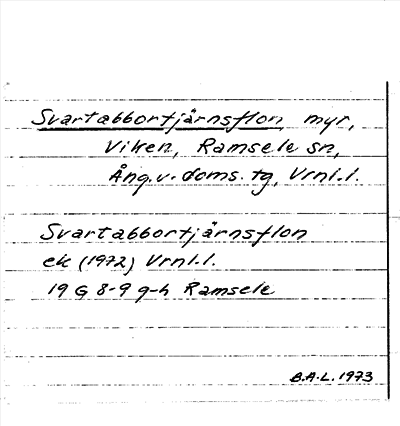 Svartabbortjärnsflon, myr,
Viken, Ramsele sn,
Ång.v.doms.tg, Vrnl.l.
Svartabbortjärnsflon
ek (1972) Vrnl.l.
19 G 8-9 g-h Ramsele
B.A.L. 1973